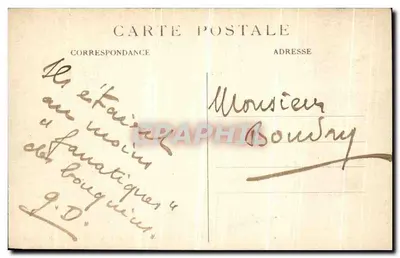 CARTE POSTALE
CORRESPONDANCE
ADRESSE
Ils étaient
au moins
" fanatiques "
des bouquins.
G.D.
Monsieur
Boudry